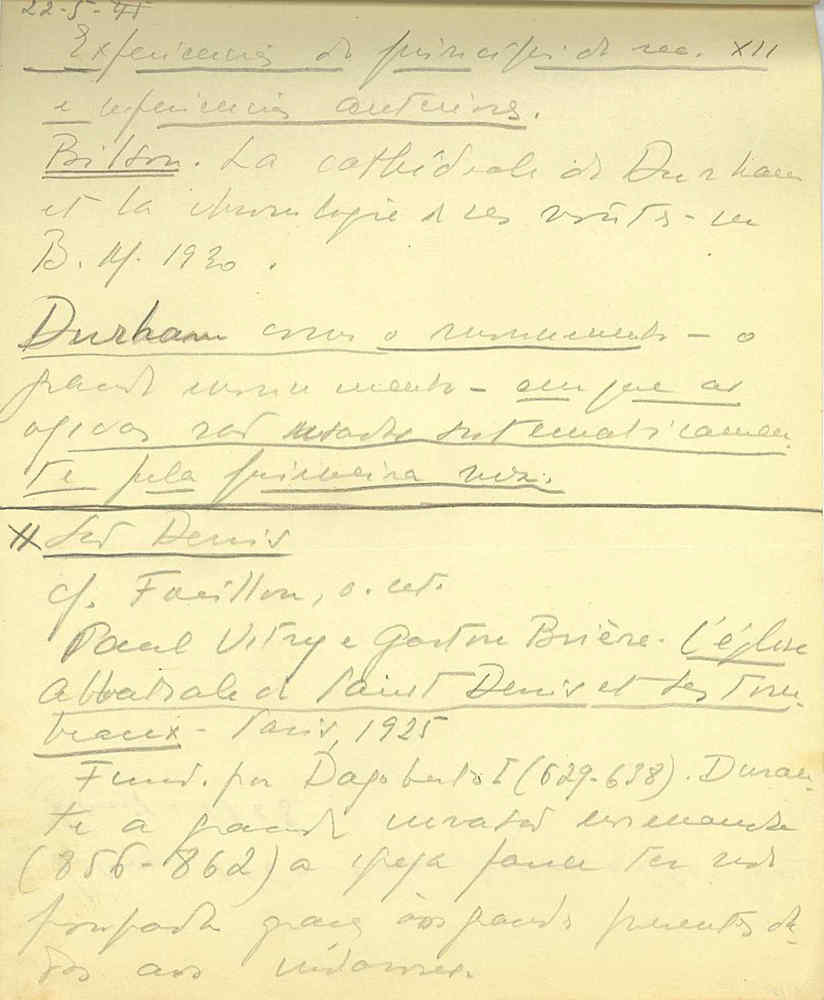 22-5-45
Experiencias do principio do sec. XII
e experiencias anteriores.
Bilson. La cathédrale de Durham
et la chronologie de ses voûtes - in
B. M. 1930.
Durham como o monumento - o
grande monumento - em que as
ogivas são usadas sistematicamen-
te pela primeira vez.
São Denis
cf. Focillon, o. cit.
Paul Vitry e Gaston Brière - L'église
abbatiale de Saint Denis et ses tom-
beaux - Paris, 1925
Fund. por Dagoberto I (629-638). Duran-
te a grande invasão normanda
(856-862) a igreja parece ter sido
poupada graças aos grandes presentes da-
dos aos